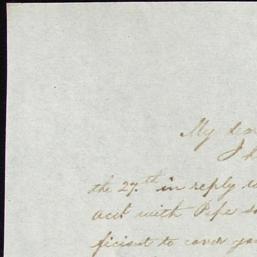 My dear
I h
the 27th in reply to
acct with Pipe s
ficient to cover yo